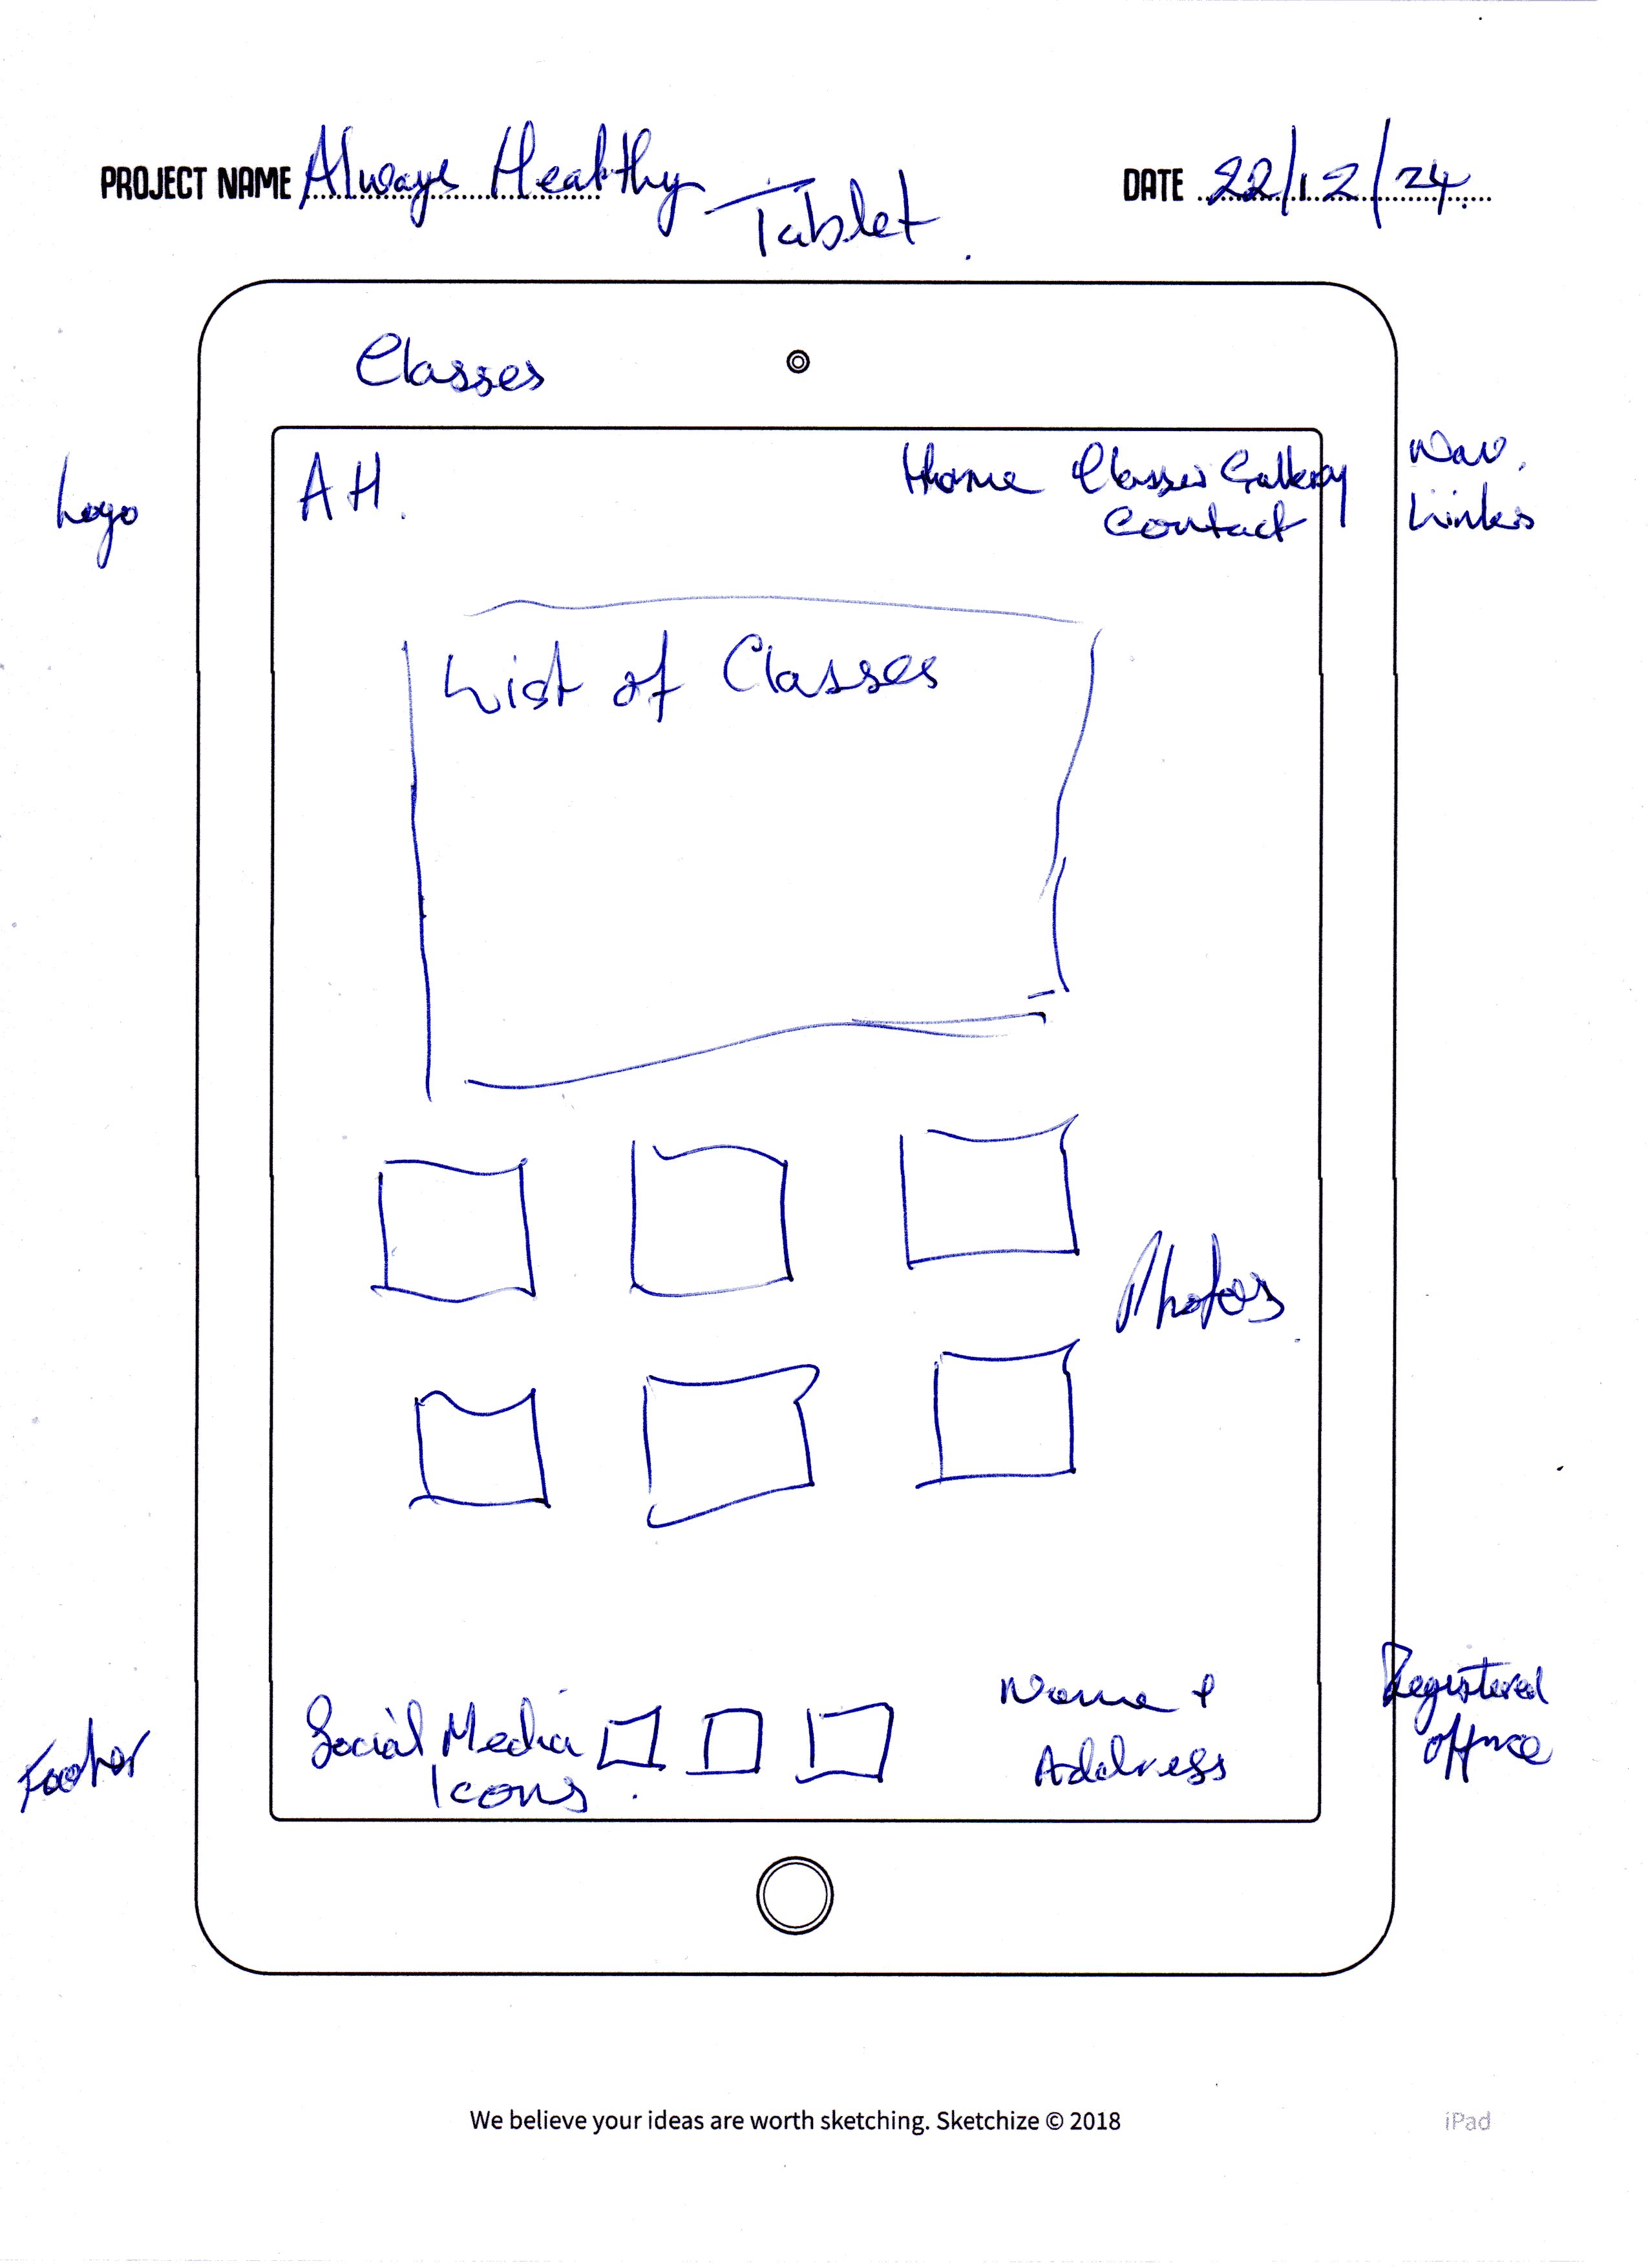 PROJECT NAME Always Healthy
Tablet.
DATE 22/12/24.
Classes
Logo
AH.
Home Classes Gallery
Contact
Nav.
Links
List of Classes
Photos.
Footer
Social Media
Icons.
Name +
Address
Registered
office
We believe your ideas are worth sketching. Sketchize © 2018
iPad